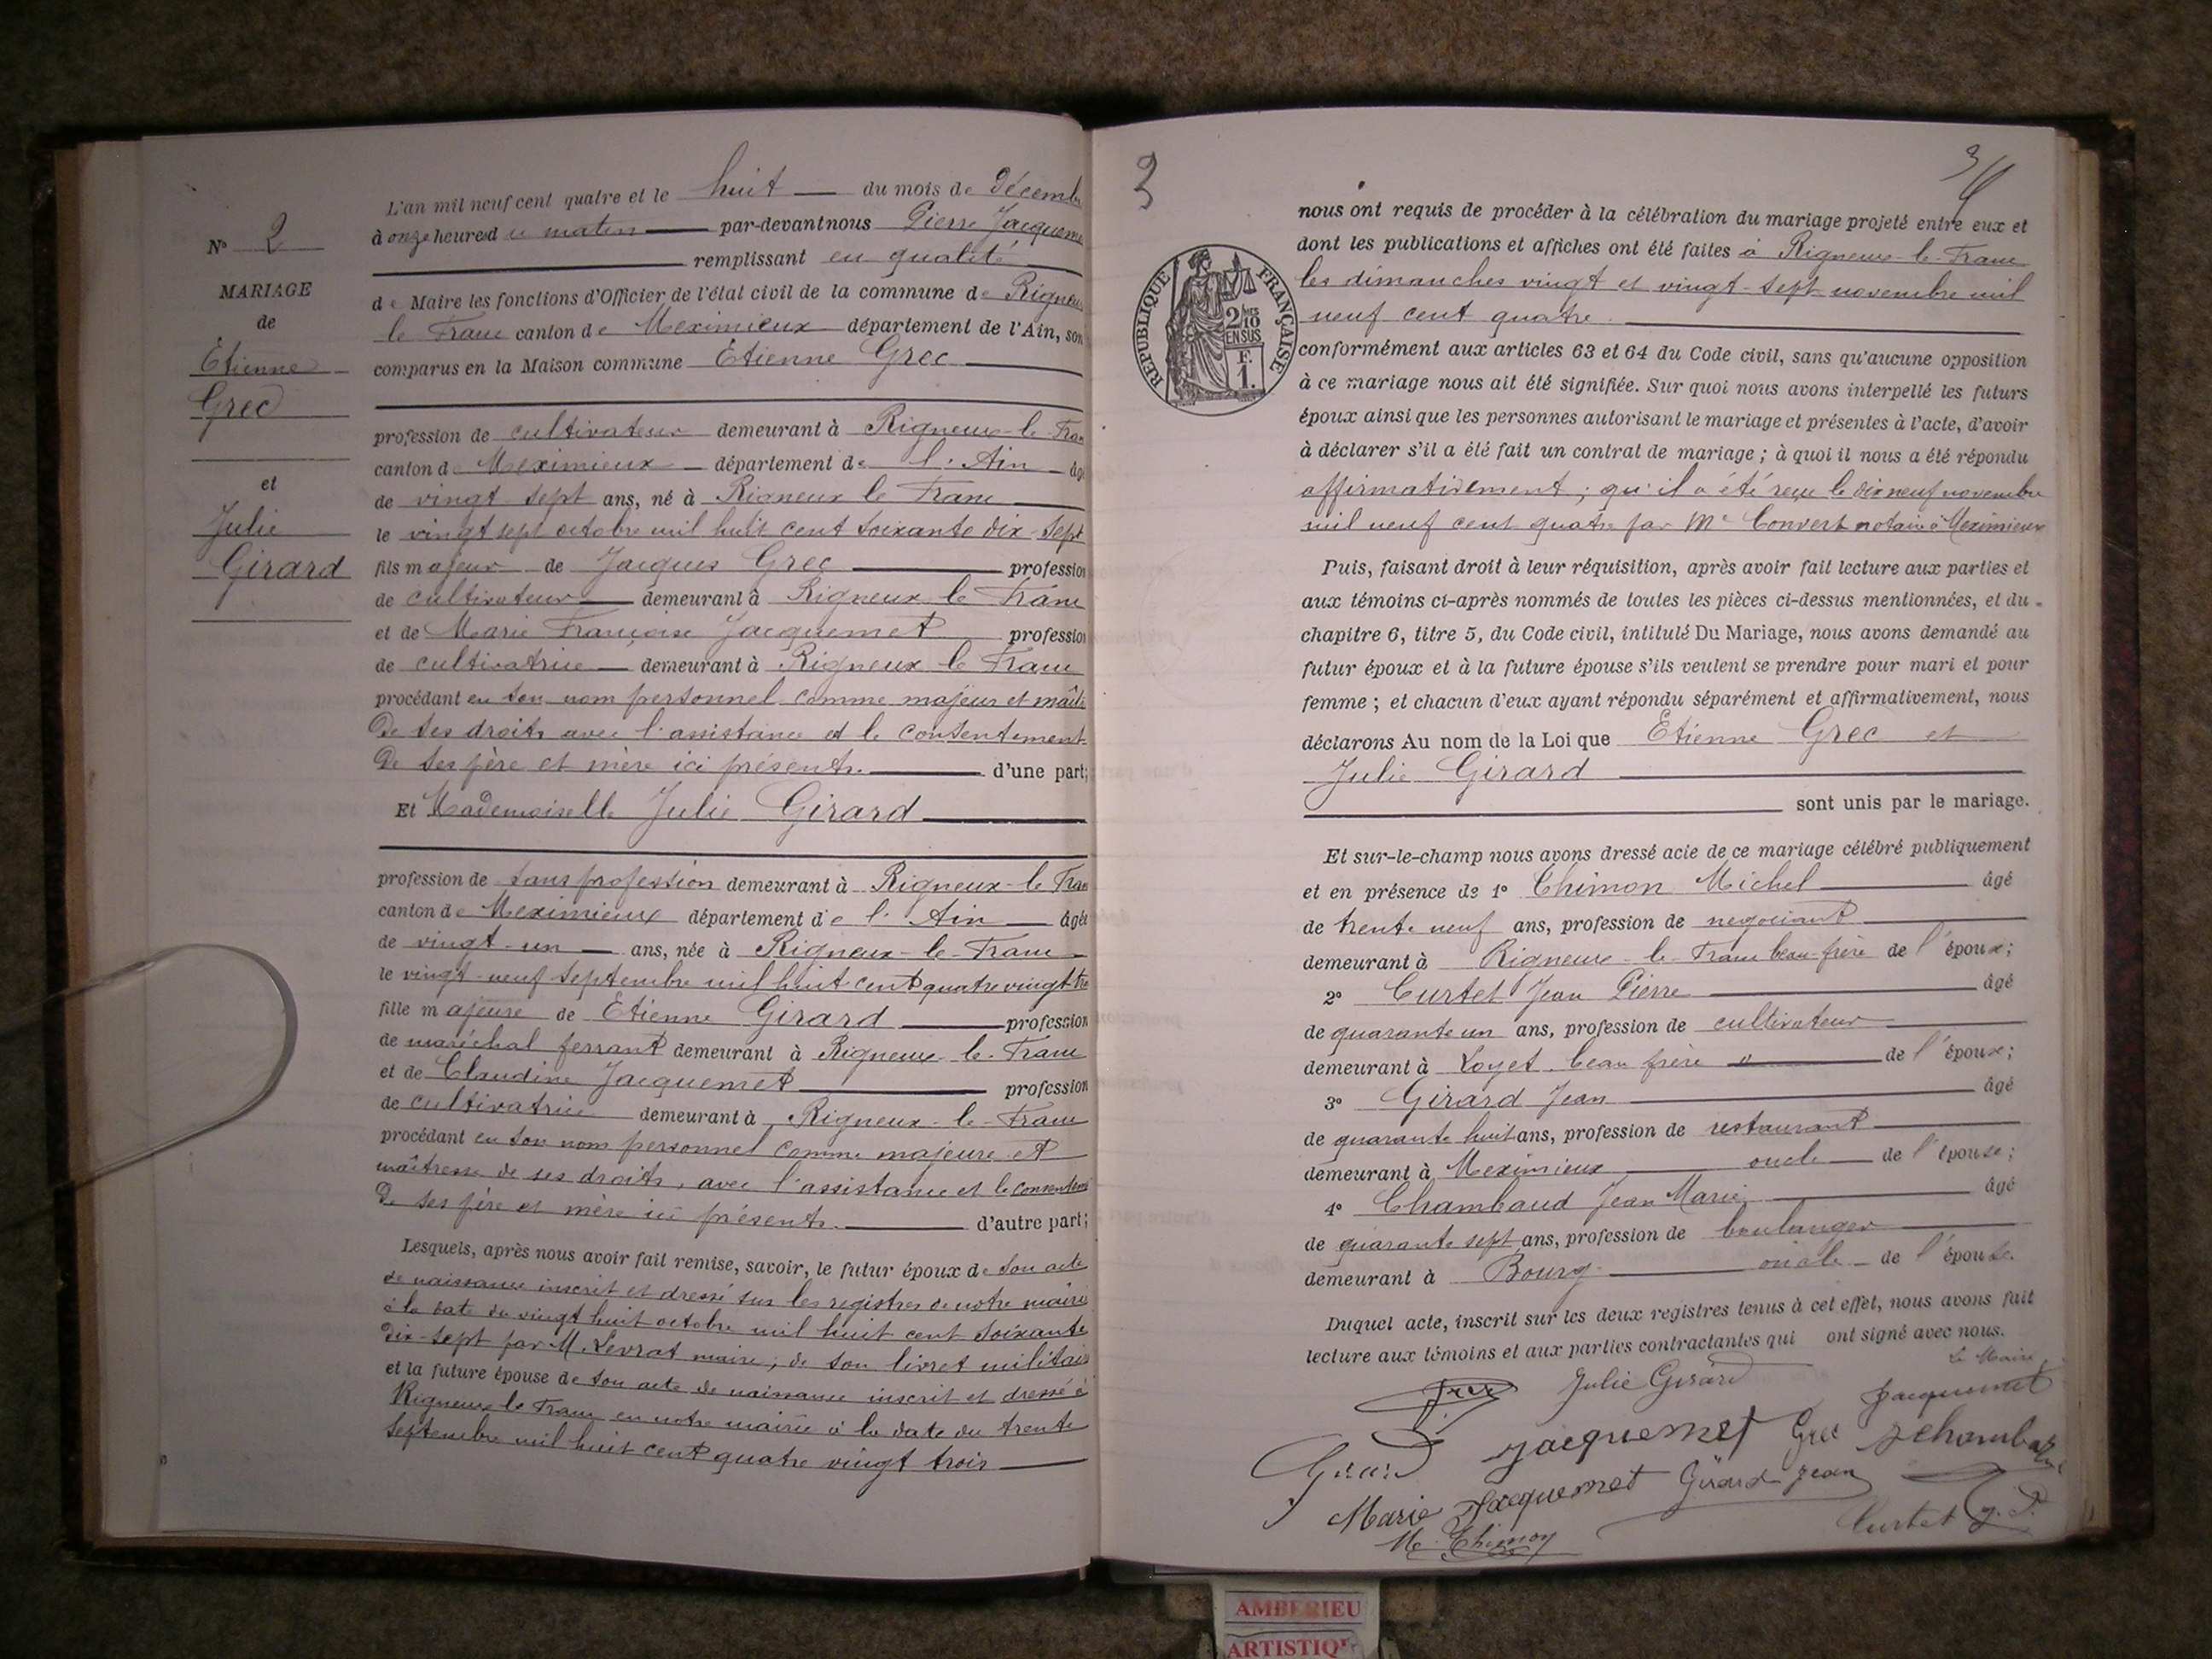 N° 2
MARIAGE
de
Etienne
Grec
et
Julie
Girard
L'an mil neuf cent quatre et le huit du mois de Décemb
à onze heures du matin par-devant nous Pierre Jacqueme
remplissant en qualité
de Maire les fonctions d'Officier de l'état civil de la commune de Rigneux
le Franc canton de Meximieux département de l'Ain, son
comparus en la Maison commune Etienne Grec
profession de cultivateur demeurant à Rigneux-le-Fran
canton de Meximieux département de l'Ain âgé
de vingt sept ans, né à Rigneux le Franc
le vingt sept octobre mil huit cent soixante dix-sept
fils majeur de Jacques Grec profession
de cultivateur demeurant à Rigneux le Franc
et de Marie Françoise Jacquemet profession
de cultivatrice demeurant à Rigneux le Franc
procédant en son nom personnel comme majeur et maître
de ses droits avec l'assistance et le consentement
de ses père et mère ici présents. d'une part;
Et Mademoiselle Julie Girard
profession de sans profession demeurant à Rigneux-le-Fran
canton de Meximieux département de l'Ain âgée
de vingt-un ans, née à Rigneux-le-Franc
le vingt-neuf septembre mil huit cent quatre vingt tro
fille majeure de Etienne Girard profession
de maréchal ferrant demeurant à Rigneux-le-Franc
et de Claudine Jacquemet profession
de cultivatrice demeurant à Rigneux-le-Franc
procédant en son nom personnel comme majeure et
maîtresse de ses droits, avec l'assistance et le consentem
de ses père et mère ici présents. d'autre part;
Lesquels, après nous avoir fait remise, savoir, le futur époux de son acte
de naissance inscrit et dressé sur les registres de notre mairie
à la date du vingt huit octobre mil huit cent soixante
dix-sept par M. Levrat maire; de son livret militaire
et la future épouse de son acte de naissance inscrit et dressé à
Rigneux le Franc en notre mairie à la date du trente
septembre mil huit cent quatre vingt trois
3
3
nous ont requis de procéder à la célébration du mariage projeté entre eux et
dont les publications et affiches ont été faites à Rigneux-le-Franc
les dimanches vingt et vingt-sept novembre mil
neuf cent quatre
RÉPUBLIQUE FRANÇAISE
2/10 MES
EN SUS
F.
1.
conformément aux articles 63 et 64 du Code civil, sans qu'aucune opposition
à ce mariage nous ait été signifiée. Sur quoi nous avons interpellé les futurs
époux ainsi que les personnes autorisant le mariage et présentes à l'acte, d'avoir
à déclarer s'il a été fait un contrat de mariage; à quoi il nous a été répondu
affirmativement; qu'il a été reçu le dix neuf novembre
mil neuf cent quatre par Me Convert notaire à Meximieux
Puis, faisant droit à leur réquisition, après avoir fait lecture aux parties et
aux témoins ci-après nommés de toutes les pièces ci-dessus mentionnées, et du
chapitre 6, titre 5, du Code civil, intitulé Du Mariage, nous avons demandé au
futur époux et à la future épouse s'ils veulent se prendre pour mari et pour
femme; et chacun d'eux ayant répondu séparément et affirmativement, nous
déclarons Au nom de la Loi que Etienne Grec et
Julie Girard
sont unis par le mariage.
Et sur-le-champ nous avons dressé acte de ce mariage célébré publiquement
et en présence de 1° Thimon Michel âgé
de trente neuf ans, profession de négociant
demeurant à Rigneux-le-Franc beau-frère de l'époux;
2° Curtet Jean Pierre âgé
de quarante un ans, profession de cultivateur
demeurant à Loyet. beau frère de l'époux;
3° Girard Jean âgé
de quarante huit ans, profession de restaurant
demeurant à Meximieux oncle de l'épouse;
4° Chambaud Jean Marie âgé
de quarante sept ans, profession de boulanger
demeurant à Bourg oncle de l'épouse.
Duquel acte, inscrit sur les deux registres tenus à cet effet, nous avons fait
lecture aux témoins et aux parties contractantes qui ont signé avec nous.
Le Maire
Grec Julie Girard Jacquemet
Girard Jacquemet Grec
Marie Jacquemet Girard Jean
M. Thimon Curtet J. P.
AMBERIEU
ARTISTIQU